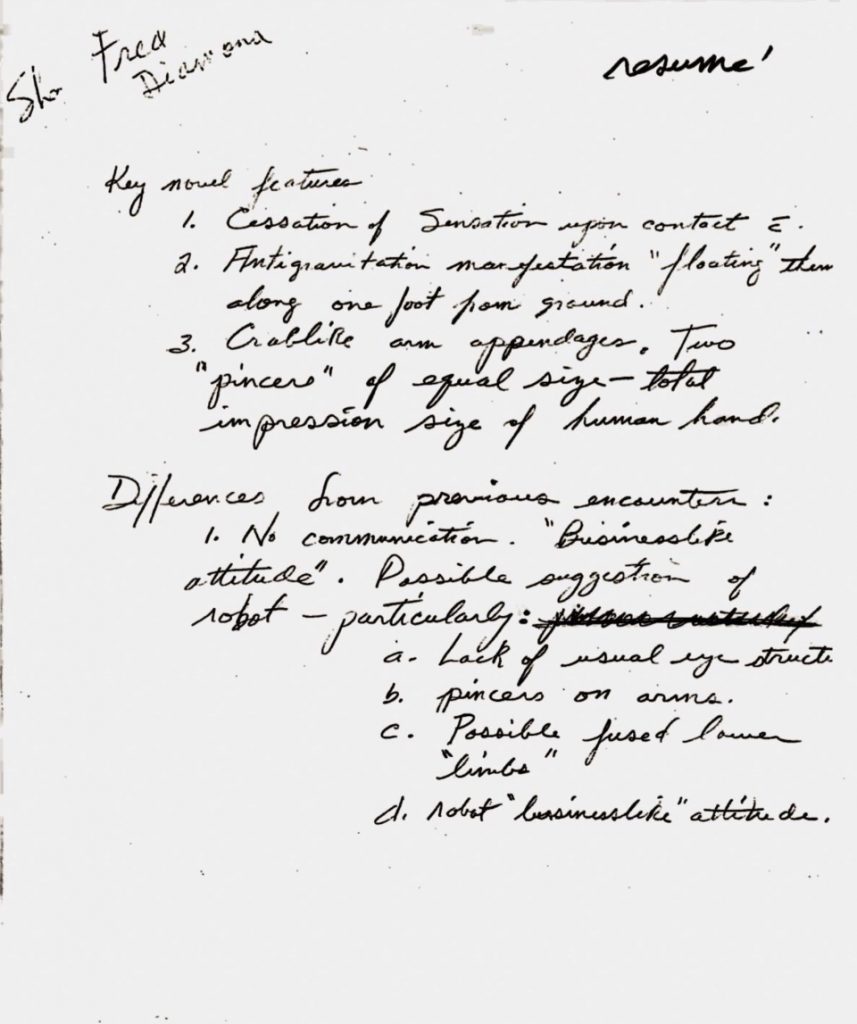 Fred
Diamond
resume'
Key novel features
1. Cessation of Sensation upon contact c̄.
2. Antigravitation manifestation "floating" them
along one foot from ground.
3. Crablike arm appendages. Two
"pincers" of equal size - total
impression size of human hand.
Differences from previous encounters:
1. No communication. "Businesslike
attitude". Possible suggestion of
robot - particularly:
a. Lack of usual eye structu
b. pincers on arms.
c. Possible fused lower
"limbs"
d. robot "businesslike" attitude.